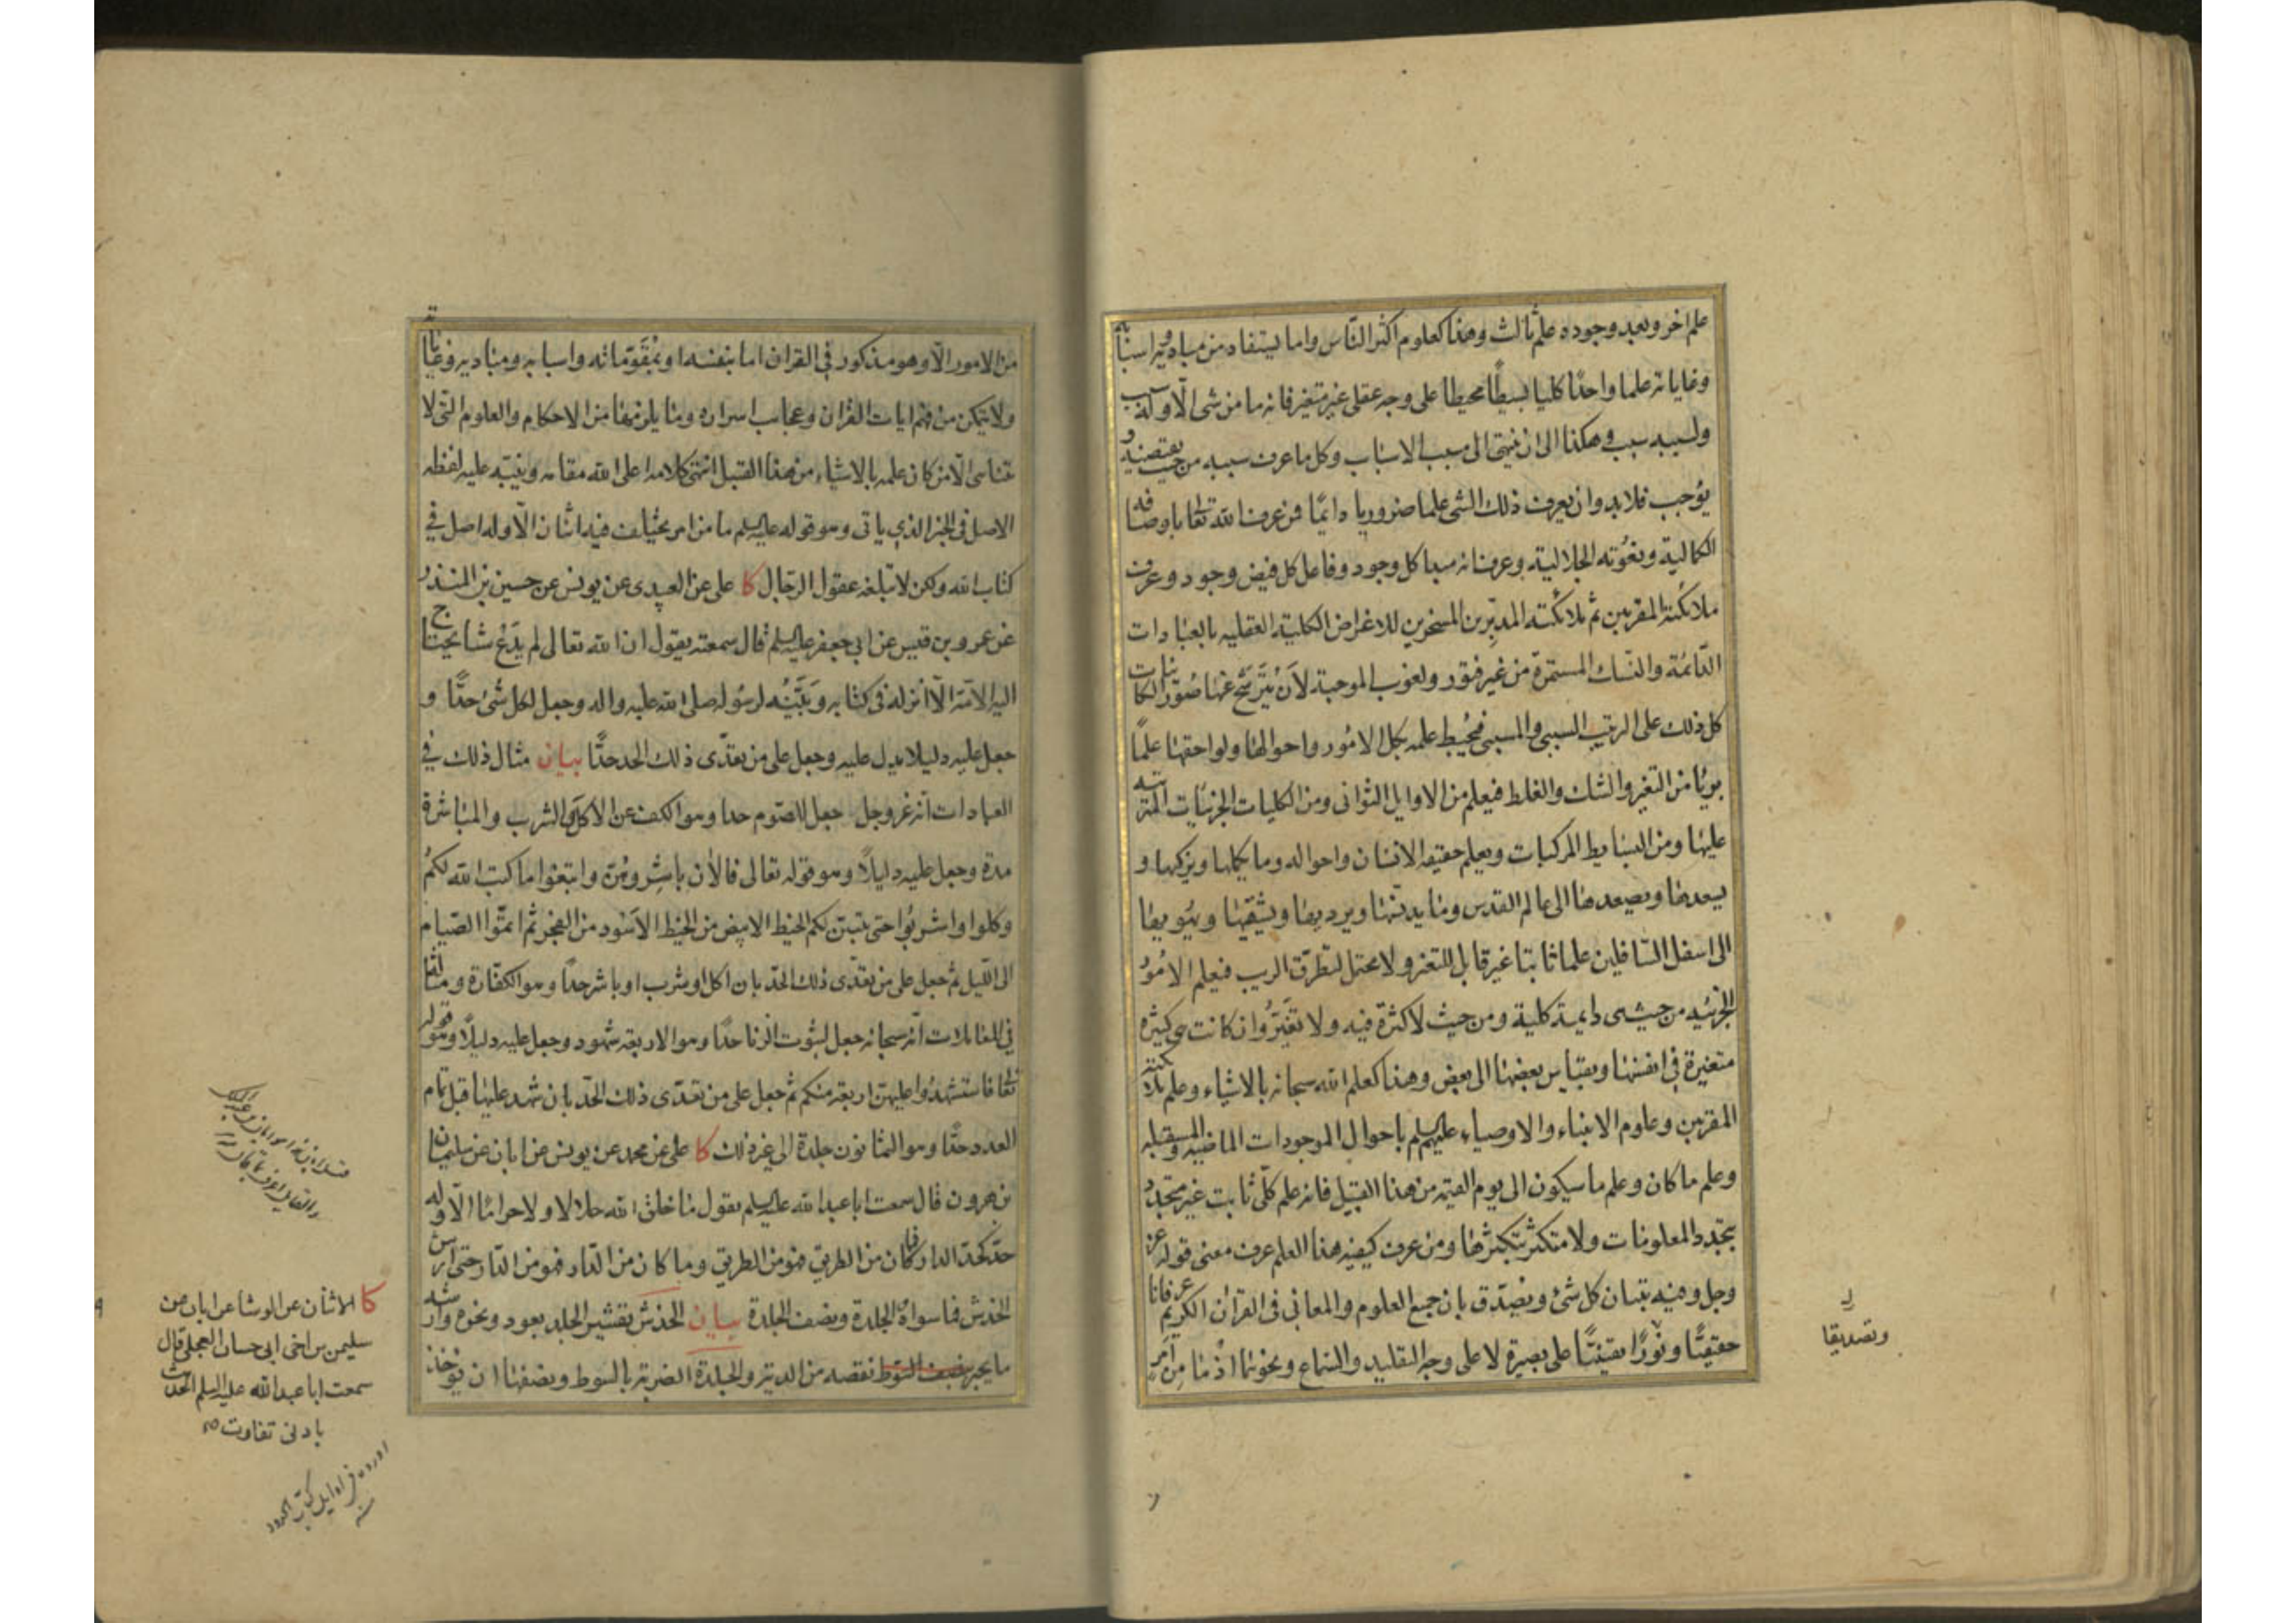 علم اخر وبعد وجوده علم ثالث وهذا كعلوم اكثر الناس واما يستفاد من مباديه واسبابه
وغاياته علما واحدًا كليا بسيطًا محيطا على وجه عقلى غير متغير فانه ما من شئ الّا وله سبب
ولسببه سبب وهكذا الى ان ينتهى الى مسبب الاسباب وكل ما عرف سببه من حيث يقتضيه و
يوجب فلا بد وان يعرف ذلك الشئ علما ضروريا دائمًا فمن عرف الله تعا باوصافه
الكمالية ونعوته الجلالية وعرف انه مبدا كل وجود وفاعل كل فيض وجود وعرف
ملائكته المقربين ثم ملائكته المدبّرين المسخرين للاغراض الكلية العقليه بالعبادات
الدّائمة والنسك المستمرّة من غير فتور ولغوب الموجبة لأن يترشّح عنها صُوَر الكائنات
كل ذلك على الترتيب السببى والمسببى فيُحيط علمه بكل الامُور واحوالها ولواحقها علمًا
بريًا من التغير والشك والغلط فيعلم من الاوايل الثوانى ومن الكليات الجزئيات المترتبه
عليها ومن البسايط المركبات ويعلم حقيقه الانسان واحواله وما يكملها ويزكيها و
يسعدها ويصعدها الى عالم القدس وما يدنسها ويرديها ويشقيها ويهويها
الى اسفل السّافلين علما ثابتا غير قابل للتغير ولا محتمل لتطرق الريب فيعلم الامُورُ
الجزئيه من حيث هى دايمة كلية ومن حيث لا كثرة فيه ولا تغيّر وان كانت هى كثيره
متغيرة فى انفسها وبقياس بعضها الى بعض وهذا كعلم الله سبحانه بالاشياء وعلم ملائكته
المقربين وعلوم الانبياء والاوصياء عليهم السلم باحوال الموجودات الماضيه والمستقبله
وعلم ما كان وعلم ما سيكون الى يوم القيمه من هذا القبيل فانه علم كلّى ثابت غير متجدد
بتجدد المعلومات ولا متكثر بتكثرها ومن عرف كيفيه هذا العلم عرف معنى قوله عز
وجل وفيه تبيان كل شئ ويصدّق بان جميع العلوم والمعانى فى القران الكريم عرفانا
حقيقيًّا ونُورًا يقينيًّا على بصيرة لا على وجه التقليد والسّماع ونحوهما اذ ما مِن أمرٍ
وتصديقا
من الامور الّا وهو مذكور فى القران اما بنفسه او بمُقَوّماته واسبابه ومباديه وغاياته
ولا يتمكن من فهم ايات القران وعجايب اسراره وما يلزمها من الاحكام والعلوم التى لا
تتناهى الّا من كان علمه بالاشياء من هذا القبيل انتهى كلامه اعلى الله مقامه وينبّه عليه لفظه
الاصل فى الخبر الذى ياتى وهو قوله عليه السلم ما من امر يختلف فيه اثنان الّا وله اصل فى
كتاب الله ولكن لا تبلغه عقول الرّجال كا على عن العبيدى عن يونس عن حسين بن المنذر
عن عمرو بن قيس عن ابى جعفر عليه السلم قال سمعته يقول ان الله تعالى لم يَدَعْ شيئا يحتاج
اليه الامّة الّا انزله فى كتابه وبَيَّنَه لرسوله صلى الله عليه واله وجعل لكل شئ حدًّا و
جعل عليه دليلا يدل عليه وجعل على من تعدّى ذلك الحد حدًّا بيان مثال ذلك فى
العبادات انّه عز وجل جعل للصّوم حدا وهو الكف عن الاكل والشرب والمباشرة
مدة وجعل عليه دليلًا وهو قوله تعالى فالأن باشروهُنّ وابتغوا ما كتب الله لكمُ
وكلوا واشربُوا حتى يتبين لكم الخيط الابيض من الخيط الاسود من الفجر ثم اتمّوا الصّيام
الى اللّيل ثم جعل على من تعدّى ذلك الحدّ بان اكل او شرب او باشر حدًا وهو الكفّارة ومثاله
فى المعاملات انّه سبحانه جعل لثبُوت الزنا حدًا وهو الاربعة شهود وجعل عليه دليلًا وهو قوله
تعا فاستشهدُوا عليهن اربعة منكم ثم جعل على من تعدّى ذلك الحدّ بان شهد عليها قبل تمام
العدد حدًّا وهو الثمانون جلدة الى غير ذلك كا على عن محمد عن يونس عن ابان عن سليمان
بن هرون قال سمعت ابا عبد الله عليه السلم يقول ما خلق الله حلالا ولا حرامًا الّا وله
حدّ كحدّ الدار فما كان من الطريق فهو من الطريق وما كان من الدّار فهو من الدّار حتى ارش
الخدش فما سواهُ والجلدة ونصف الجلدة بيان الخدش تقشير الجلد بعود ونحوه وارشه
ما يجبر نقصه من الدية والجلدة الضربة بالسوط ونصفها ان يؤخذ
كا الاثنان عن الوشا عن ابان عن
سليمن بن اخى ابى حسان العجلى قال
سمعت ابا عبد الله عليه السلم الحديث
بادنى تفاوت